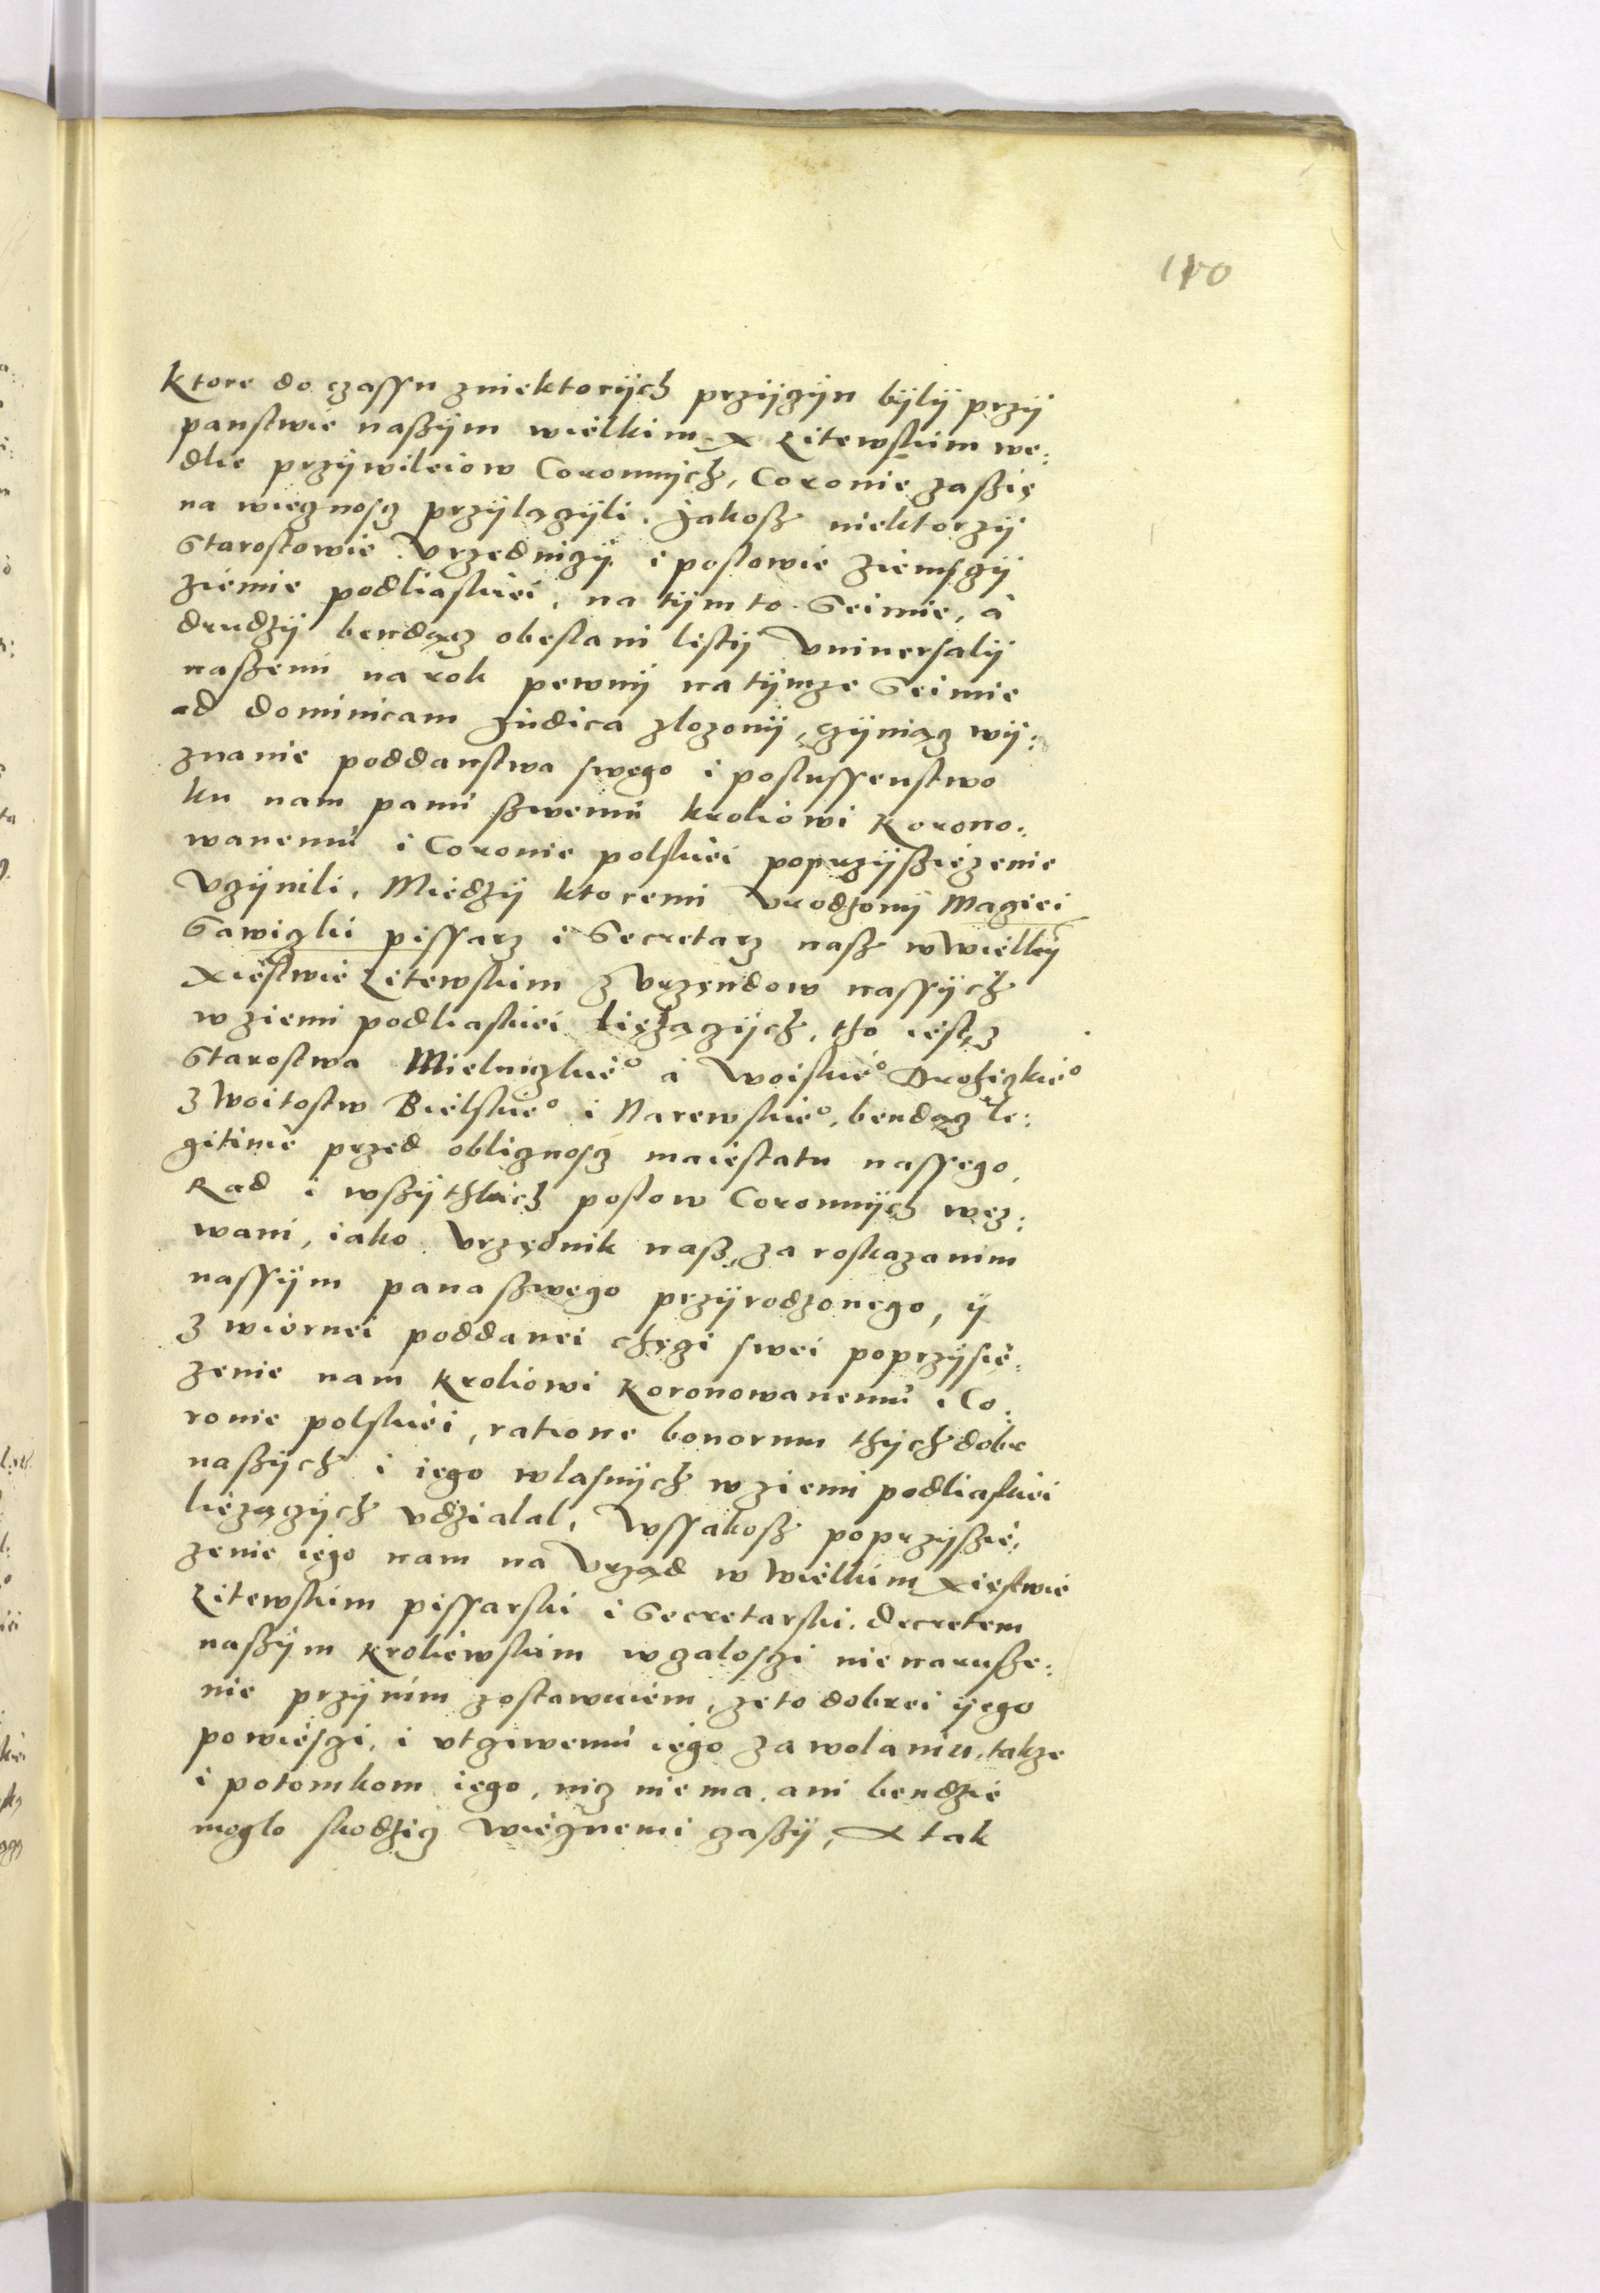 110
ktore do czassu zniektorÿch przÿczÿn bÿlÿ przÿ
panstwie naszÿm wielkim X Litewskim we:
dlie przÿwileiow Coronnÿch, Coronie zaszię
na wiecznoscz przÿlączÿli. Jakosz niektorzÿ
Starostowie Vrzedniczÿ i poslowie ziemsczÿ
ziemie podliaskiei, na tÿmto Seimie, a
drudzÿ bendącz obeslani listÿ Vniuersalÿ
naszemi na rok pewnÿ na tÿmze Seimie
ad dominicam Judica zlozonÿ, czÿniącz wÿ:
znanie poddanstwa swego i poslussenstwo
ku nam panu szwemu kroliowi korono:
wanemu i Coronie polskiei poprzÿsziezenie
Vczÿnili. Miedzÿ ktoremi Vrodzonÿ Maciei
Sawiczki pissarz i Secretarz nasz w wielkÿ
Xiestwie Litewskim z vrzendow nassÿch
w ziemi podliaskiei liężączÿch, tho iest z
Starostwa Mielniczkieº a Woiskieº Drohiczkieº
z Woitostw Bielskieº i Narewskieº, bendącz le:
gitime przed obliznoscz maiestatu nassego,
Rad i wszÿthkich poslow Coronnÿch wez:
wani, iako Vrzędnik nasz, za roskazanim
nassÿm pana szwego przÿrodzonego, ÿ
z wiernei poddanei chęczi swei poprzÿsie:
zenie nam kroliowi koronowanemu i Co:
ronie polskiei, ratione bonorum thÿch dobr
naszÿch i iego wlasnÿch w ziemi podliaskiei
liezączÿch vdzialal, Wssakosz poprzÿszie:
zenie iego nam na Vrząd w wielkim Xięstwie
Litewskim pissarski i Secretarski, decretem
naszÿm kroliewskim w calosczi nienarusze:
nie przÿnim zostawuiem, ze to dobrei ÿego
powiesczi, i vtcziwemu iego zawolaniu, takze
i potomkom iego, nicz niema ani bendzie
moglo skodzicz wiecznemi czaszÿ, A tak